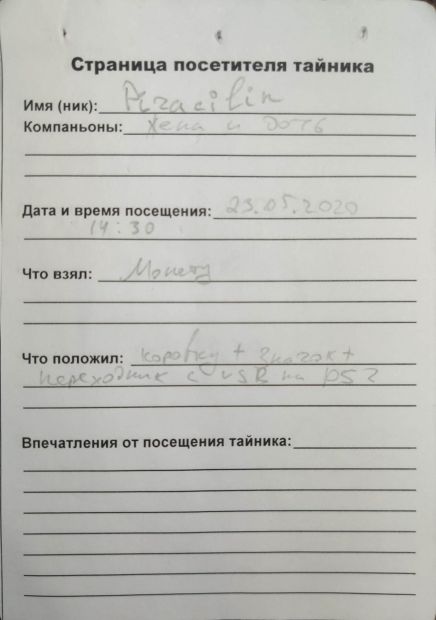 Страница посетителя тайника
Имя (ник): Piracilin
Компаньоны: жена и дочь
Дата и время посещения: 23.05.2020
14:30
Что взял: Монету
Что положил: коробку + значок +
переходник с USB на PS2
Впечатления от посещения тайника: